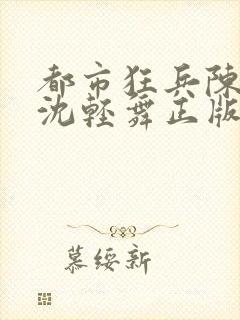 都市狂兵陳
沈輕舞正版
慕綏新